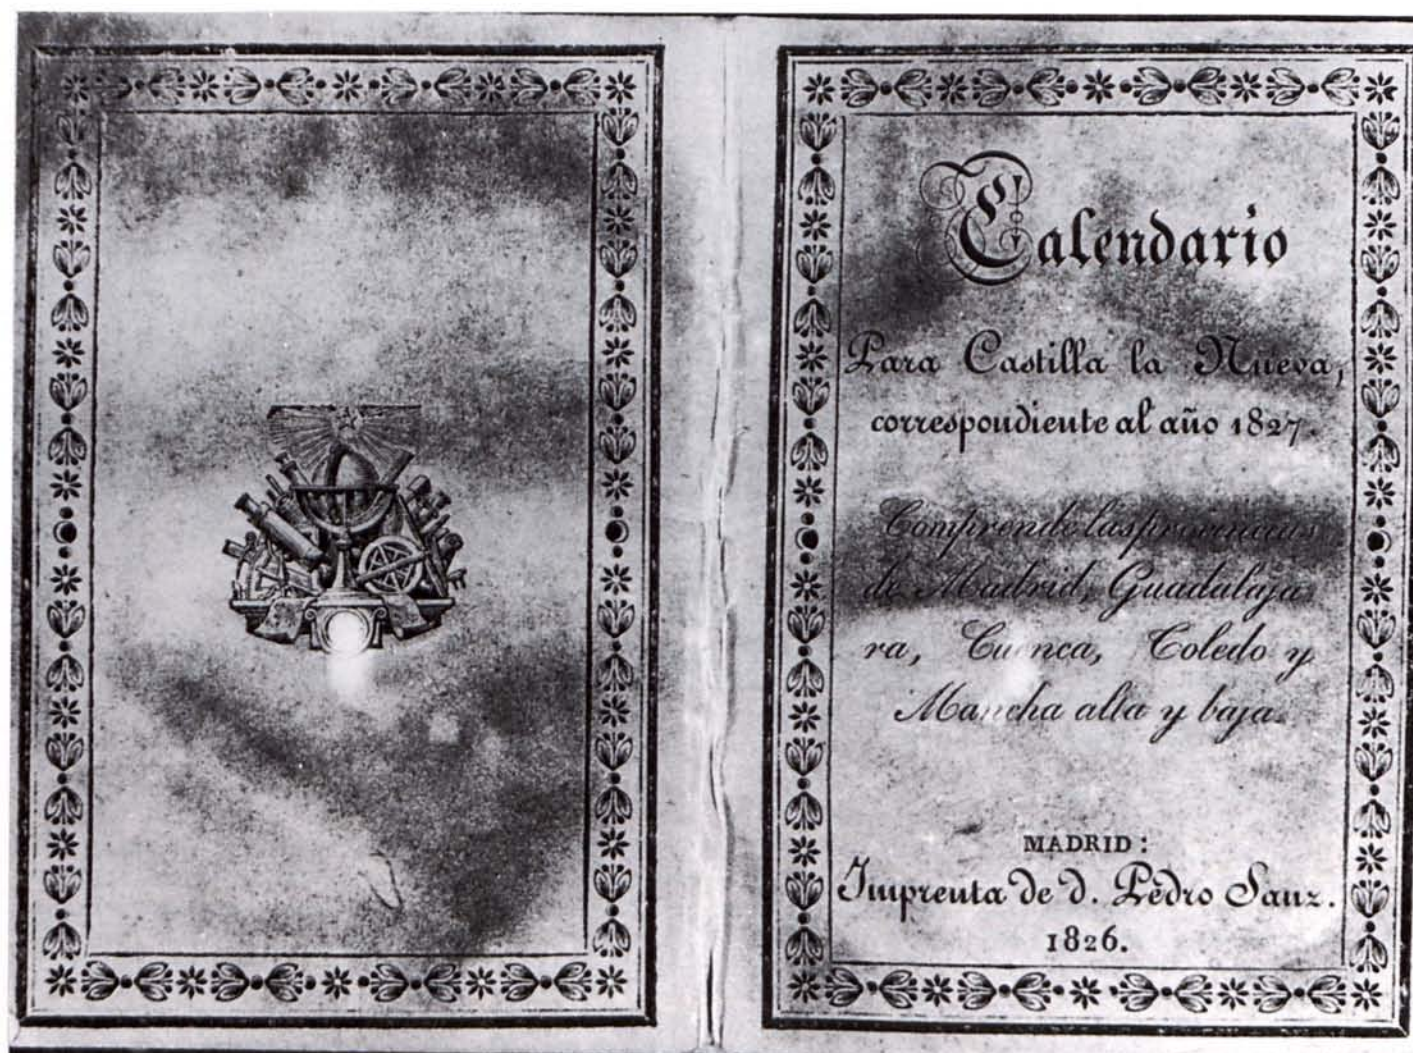 Calendario
Para Castilla la Nueva,
correspondiente al año 1827.
Comprende las provincias
de Madrid, Guadalaja
ra, Cuenca, Toledo y
Mancha alta y baja.
MADRID:
Imprenta de d. Pedro Sanz.
1826.